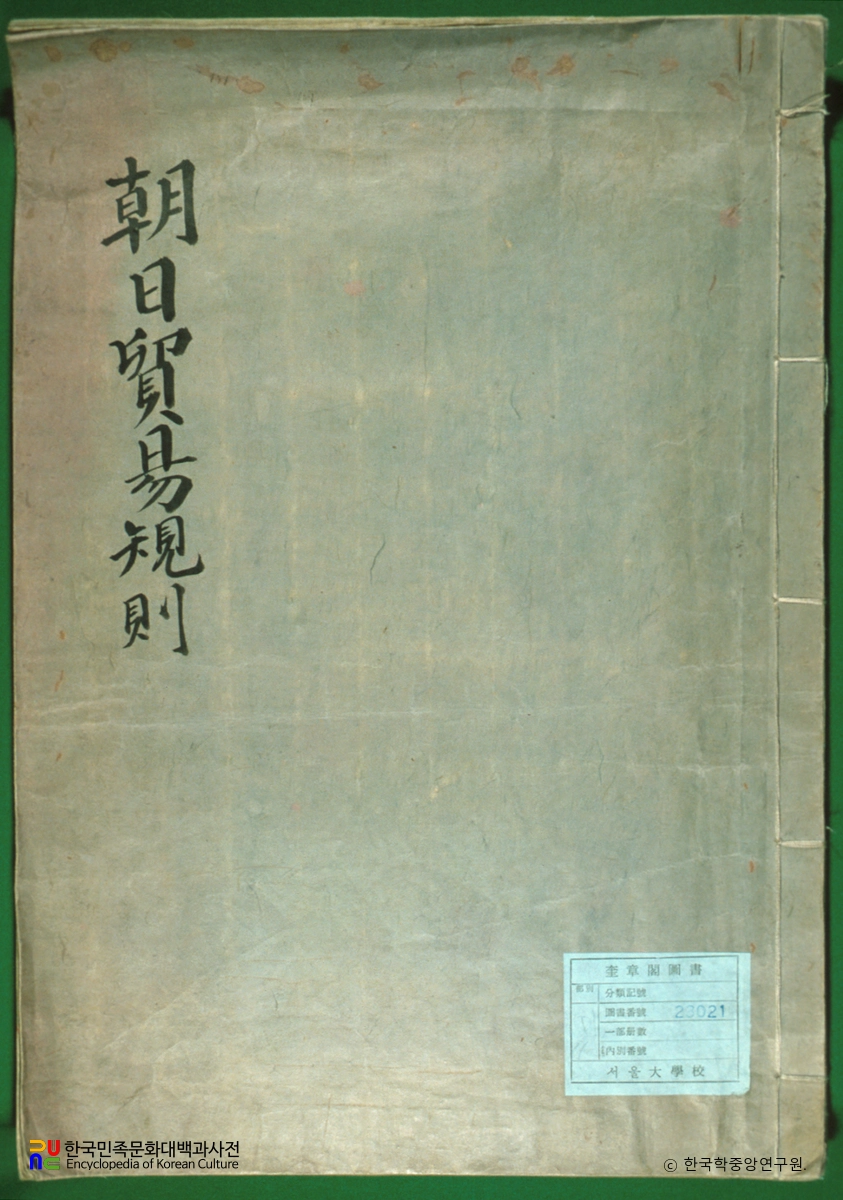 朝日貿易規則
奎章閣圖書
部別
分類記號
圖書番號 23021
一部冊數
(內)別番號
서울大學校
한국민족문화대백과사전
Encyclopedia of Korean Culture
© 한국학중앙연구원.